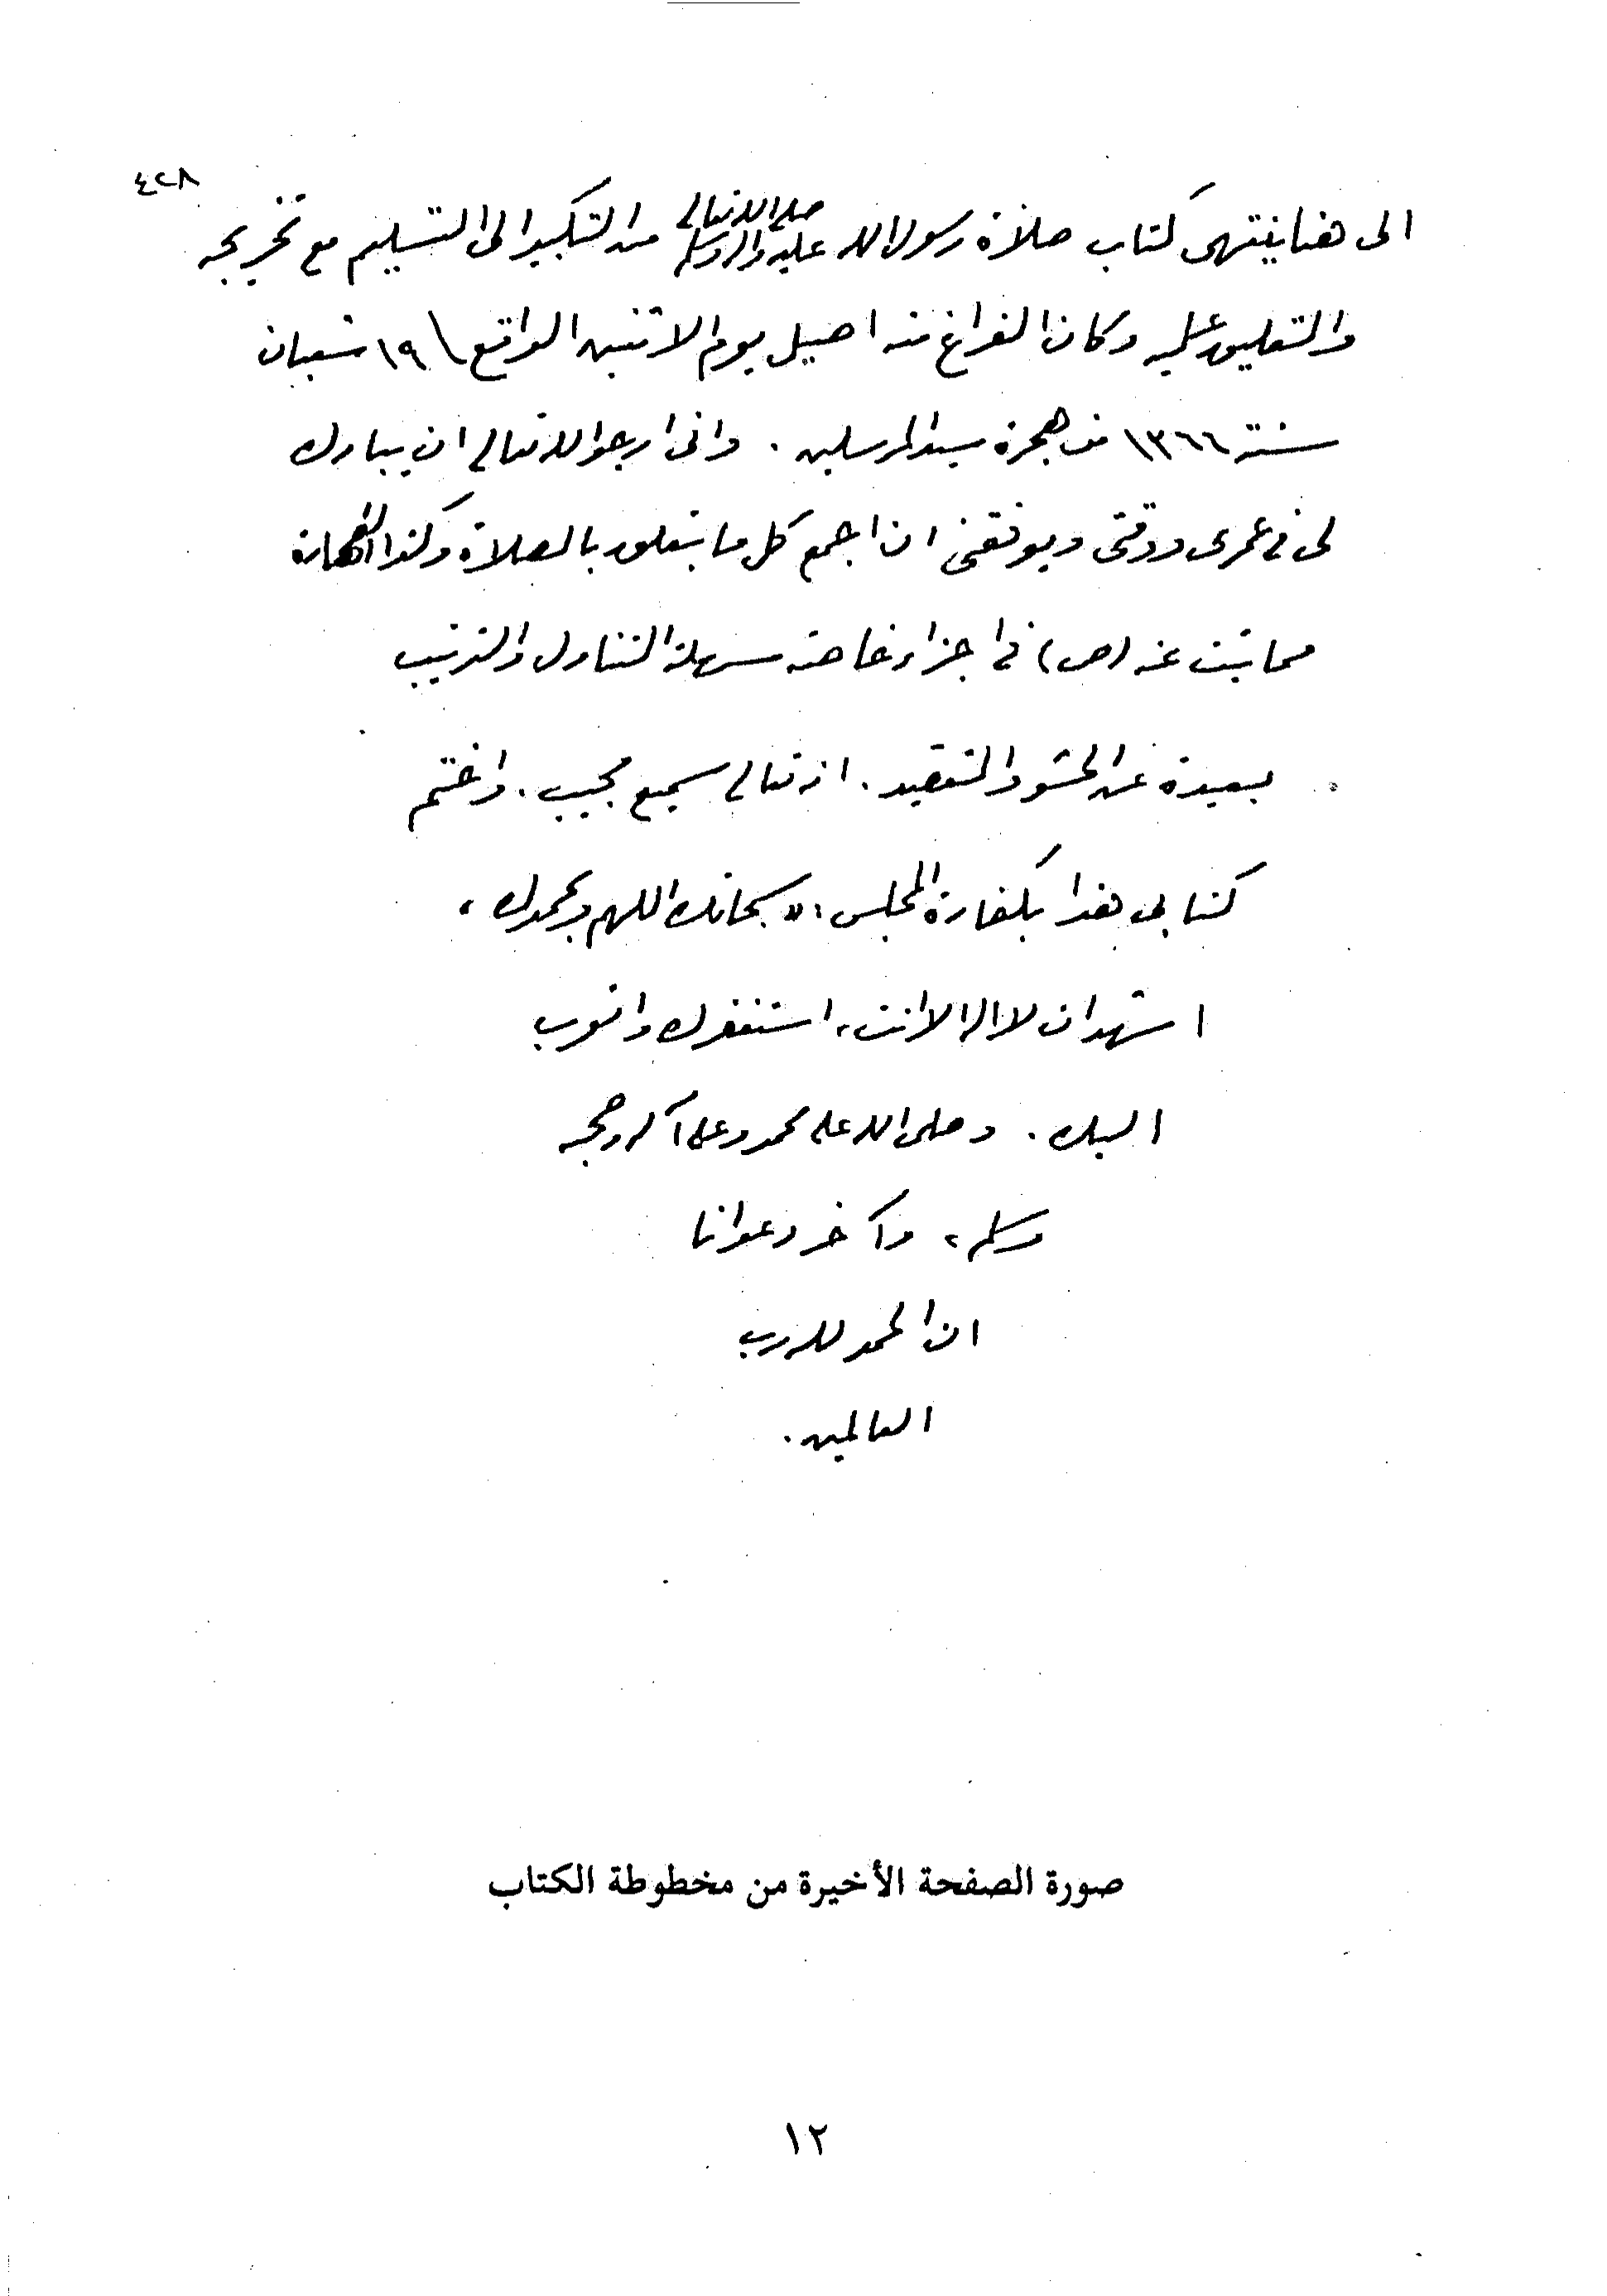 ٤٢٨
الى هنا ينتهى كتاب صلاة رسول الله صلى الله تعالى عليه وآله وسلم من التكبير الى التسليم مع تخريجه
والتعليق عليه وكان الفراغ منه اصيل يوم الاثنين الواقع \ ١٩ شعبان
سنة ١٣٦٦ من هجرة سيد المرسلين . وانى ارجو الله تعالى ان يبارك
لى فى عمرى ووقتى ويوفقنى ان اجمع كل ما يتعلق بالصلاة وكذا الطهارة
مما ثبت عنه (ص) فى اجزاء خاصة سهلة التناول والترتيب
بعيدة عن الحشو والتعقيد . انه تعالى سميع مجيب . واختم
كتابى هذا بكفارة المجلس : « سبحانك اللهم وبحمدك ،
اشهد ان لا اله الا انت ، استغفرك واتوب
اليك . وصلى الله على محمد وعلى آله وصحبه
وسلم ، وآخر دعوانا
ان الحمد لله رب
العالمين .
صورة الصفحة الأخيرة من مخطوطة الكتاب
١٢